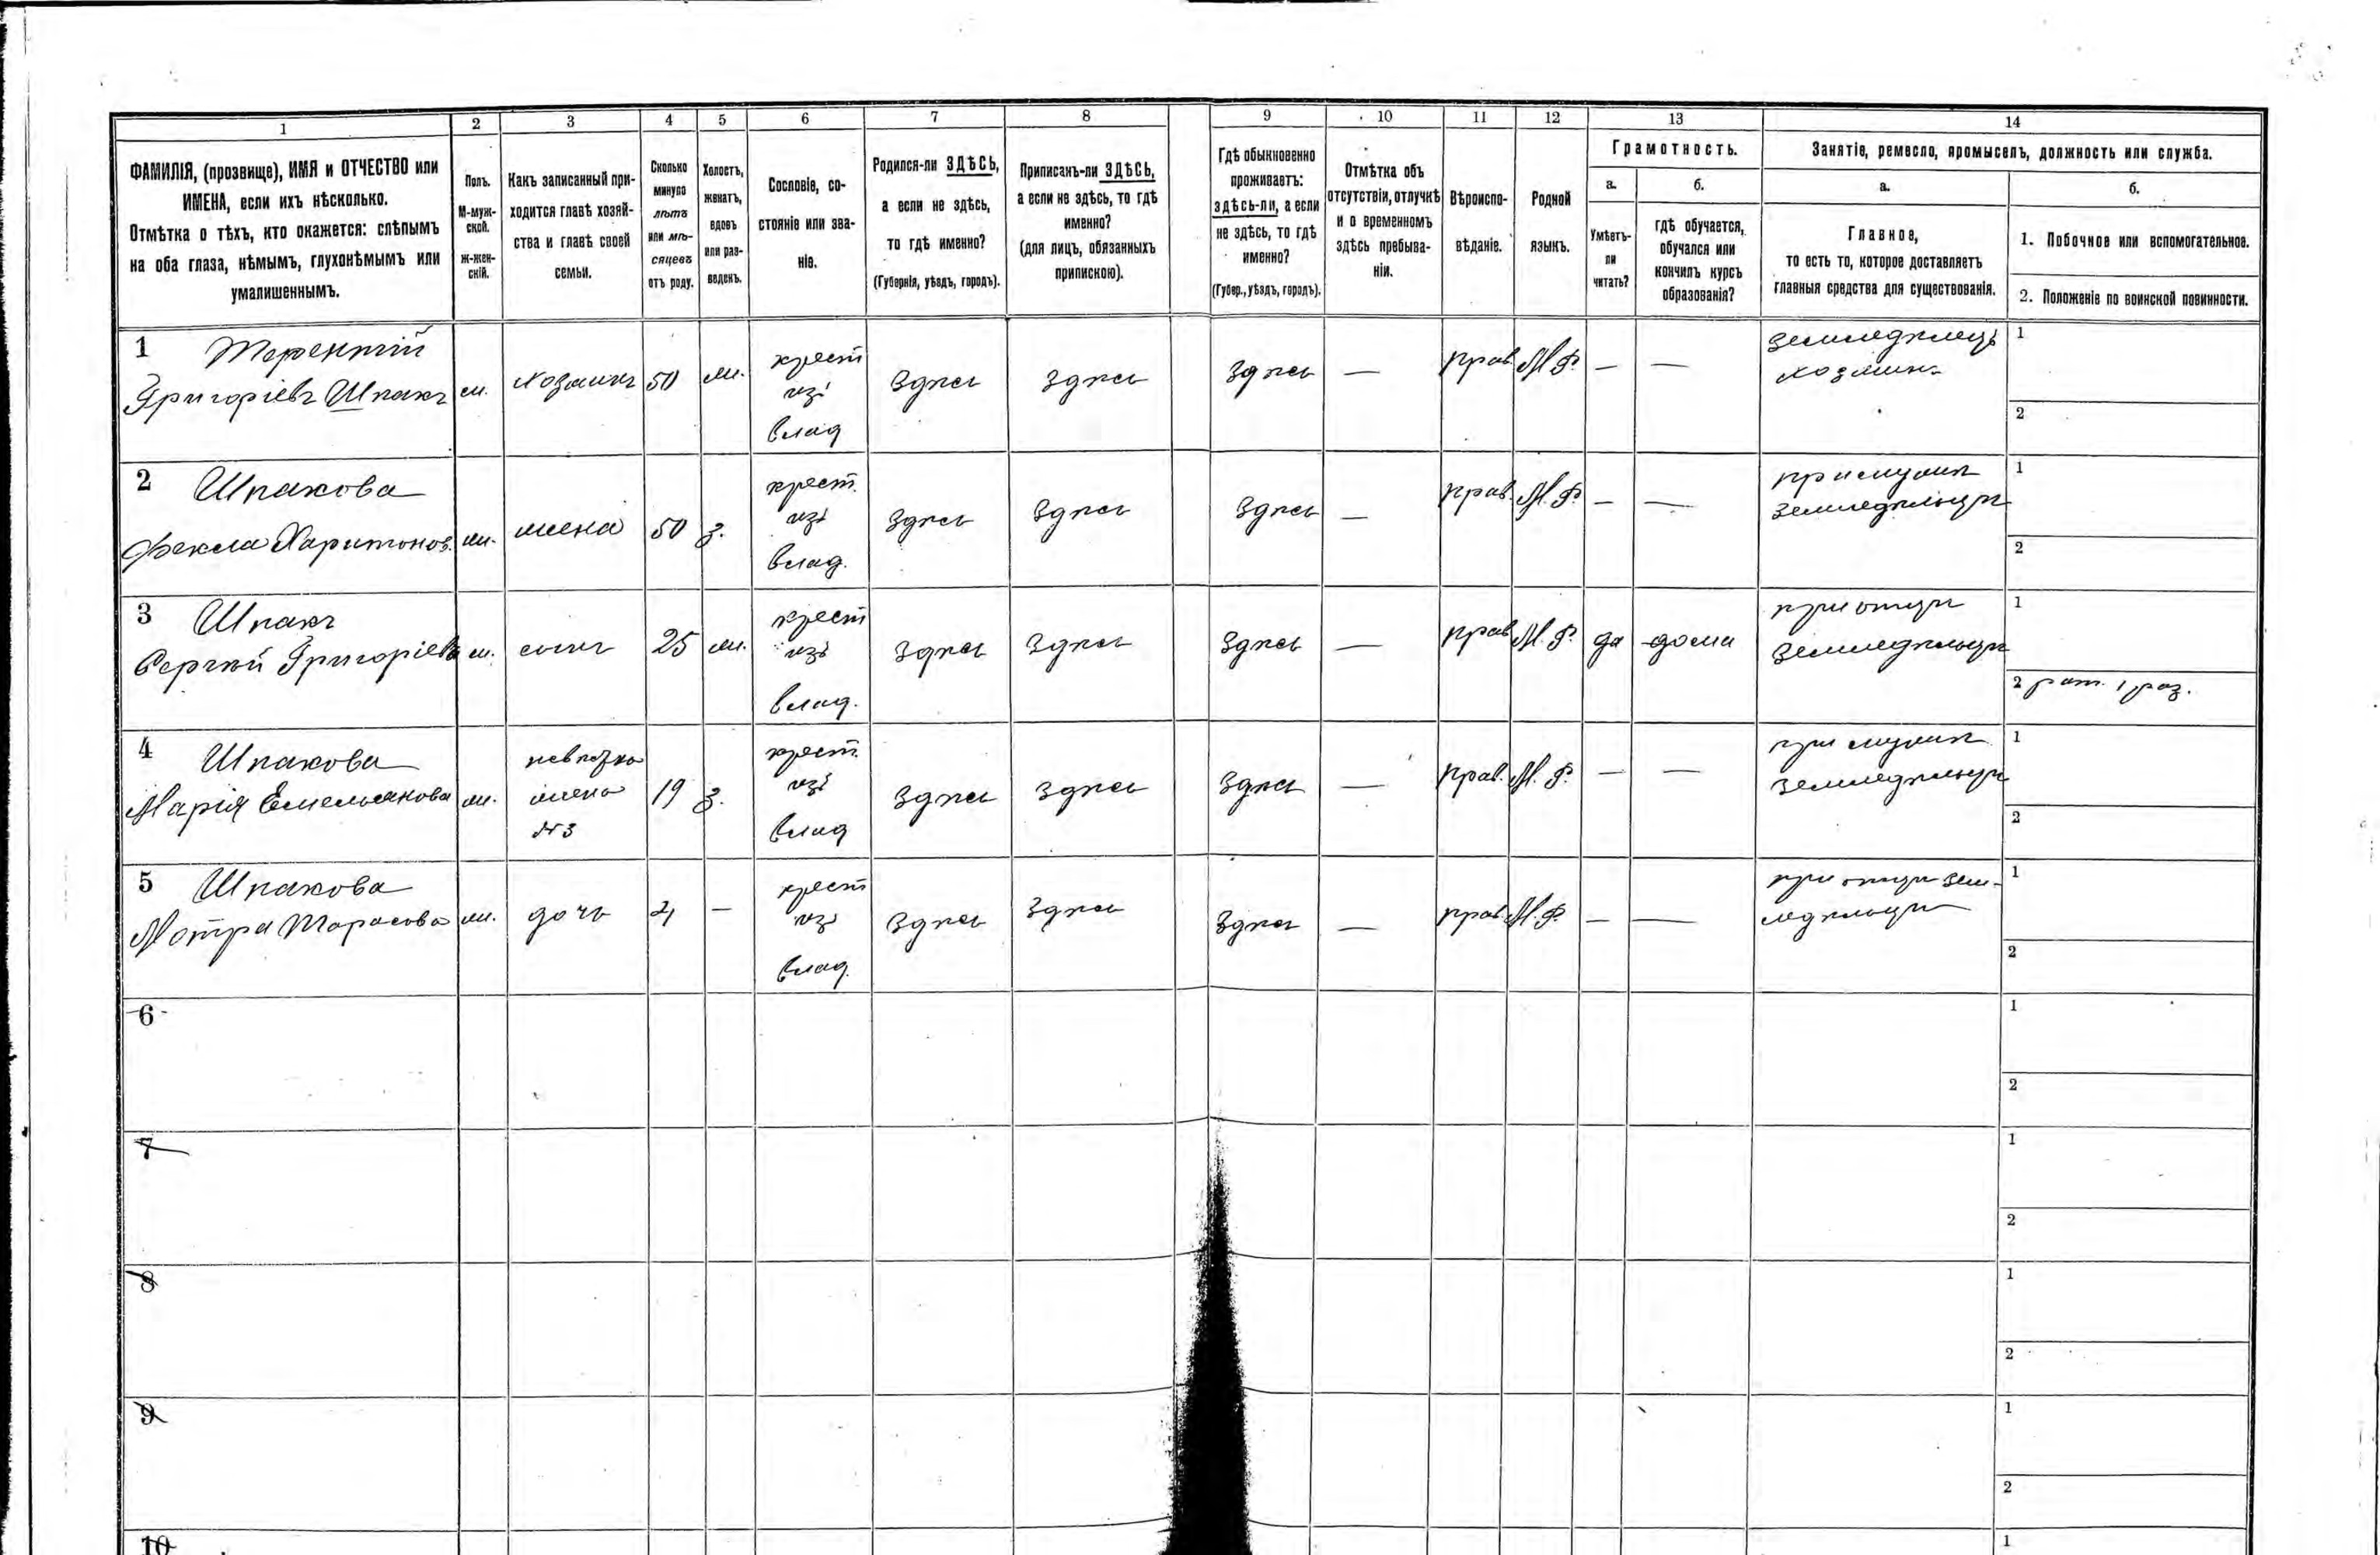 1 2 3 4 5 6 7 8 9 10 11 12 13 14
ФАМИЛІЯ, (прозвище), ИМЯ и ОТЧЕСТВО или
ИМЕНА, если ихъ нѣсколько.
Отмѣтка о тѣхъ, кто окажется: слѣпымъ
на оба глаза, нѣмымъ, глухонѣмымъ или
умалишеннымъ.
Полъ.
М-муж-
ской.
Ж-жен-
скій.
Какъ записанный при-
ходится главѣ хозяй-
ства и главѣ своей
семьи.
Сколько
минуло
лѣтъ
или мѣ-
сяцевъ
отъ роду.
Холостъ,
женатъ,
вдовъ
или раз-
веденъ.
Сословіе, со-
стояніе или зва-
ніе.
Родился-ли ЗДѢСЬ,
а если не здѣсь,
то гдѣ именно?
(Губернія, уѣздъ, городъ).
Приписанъ-ли ЗДѢСЬ,
а если не здѣсь, то гдѣ
именно?
(для лицъ, обязанныхъ
припискою).
Гдѣ обыкновенно
проживаетъ:
здѣсь-ли, а если
не здѣсь, то гдѣ
именно?
(Губер., уѣздъ, городъ).
Отмѣтка объ
отсутствіи, отлучкѣ
и о временномъ
здѣсь пребыва-
ніи.
Вѣроиспо-
вѣданіе.
Родной
языкъ.
Грамотность.
а.
Умѣетъ-
ли
читать?
б.
гдѣ обучается,
обучался или
кончилъ курсъ
образованія?
Занятіе, ремесло, промыселъ, должность или служба.
а.
Главное,
то есть то, которое доставляетъ
главныя средства для существованія.
б.
1. Побочное или вспомогательное.
2. Положеніе по воинской повинности.
1 Терентій
Григоріевъ Шпакъ
м.
хозяинъ
50
ж.
крест
изъ
влад
здѣсь
здѣсь
здѣсь
—
прав.
М. Р.
—
—
земледѣлецъ
хозяинъ
1
2
2 Шпакова
Фекла Харитонов.
ж.
жена
50
з.
крест.
изъ
влад.
здѣсь
здѣсь
здѣсь
—
прав.
М. Р.
—
—
при мужѣ
земледѣльцѣ
1
2
3 Шпакъ
Сергѣй Григоріевъ
м.
сынъ
25
ж.
крест
изъ
влад.
здѣсь
здѣсь
здѣсь
—
прав.
М. Р.
да
дома
при отцѣ
земледѣльцѣ
1
2 рат. 1 раз.
4 Шпакова
Марія Емельянова
ж.
невѣстка
жена
№3
19
з.
крест.
изъ
влад
здѣсь
здѣсь
здѣсь
—
прав.
М. Р.
—
—
при мужѣ
земледѣльцѣ
1
2
5 Шпакова
Мотра Тарасова
ж.
дочь
—
крест
изъ
влад.
здѣсь
здѣсь
здѣсь
—
прав.
М. Р.
—
—
при отцѣ зем-
ледѣльцѣ
1
2
6
1
2
7
1
2
8
1
2
9
1
2
10
1